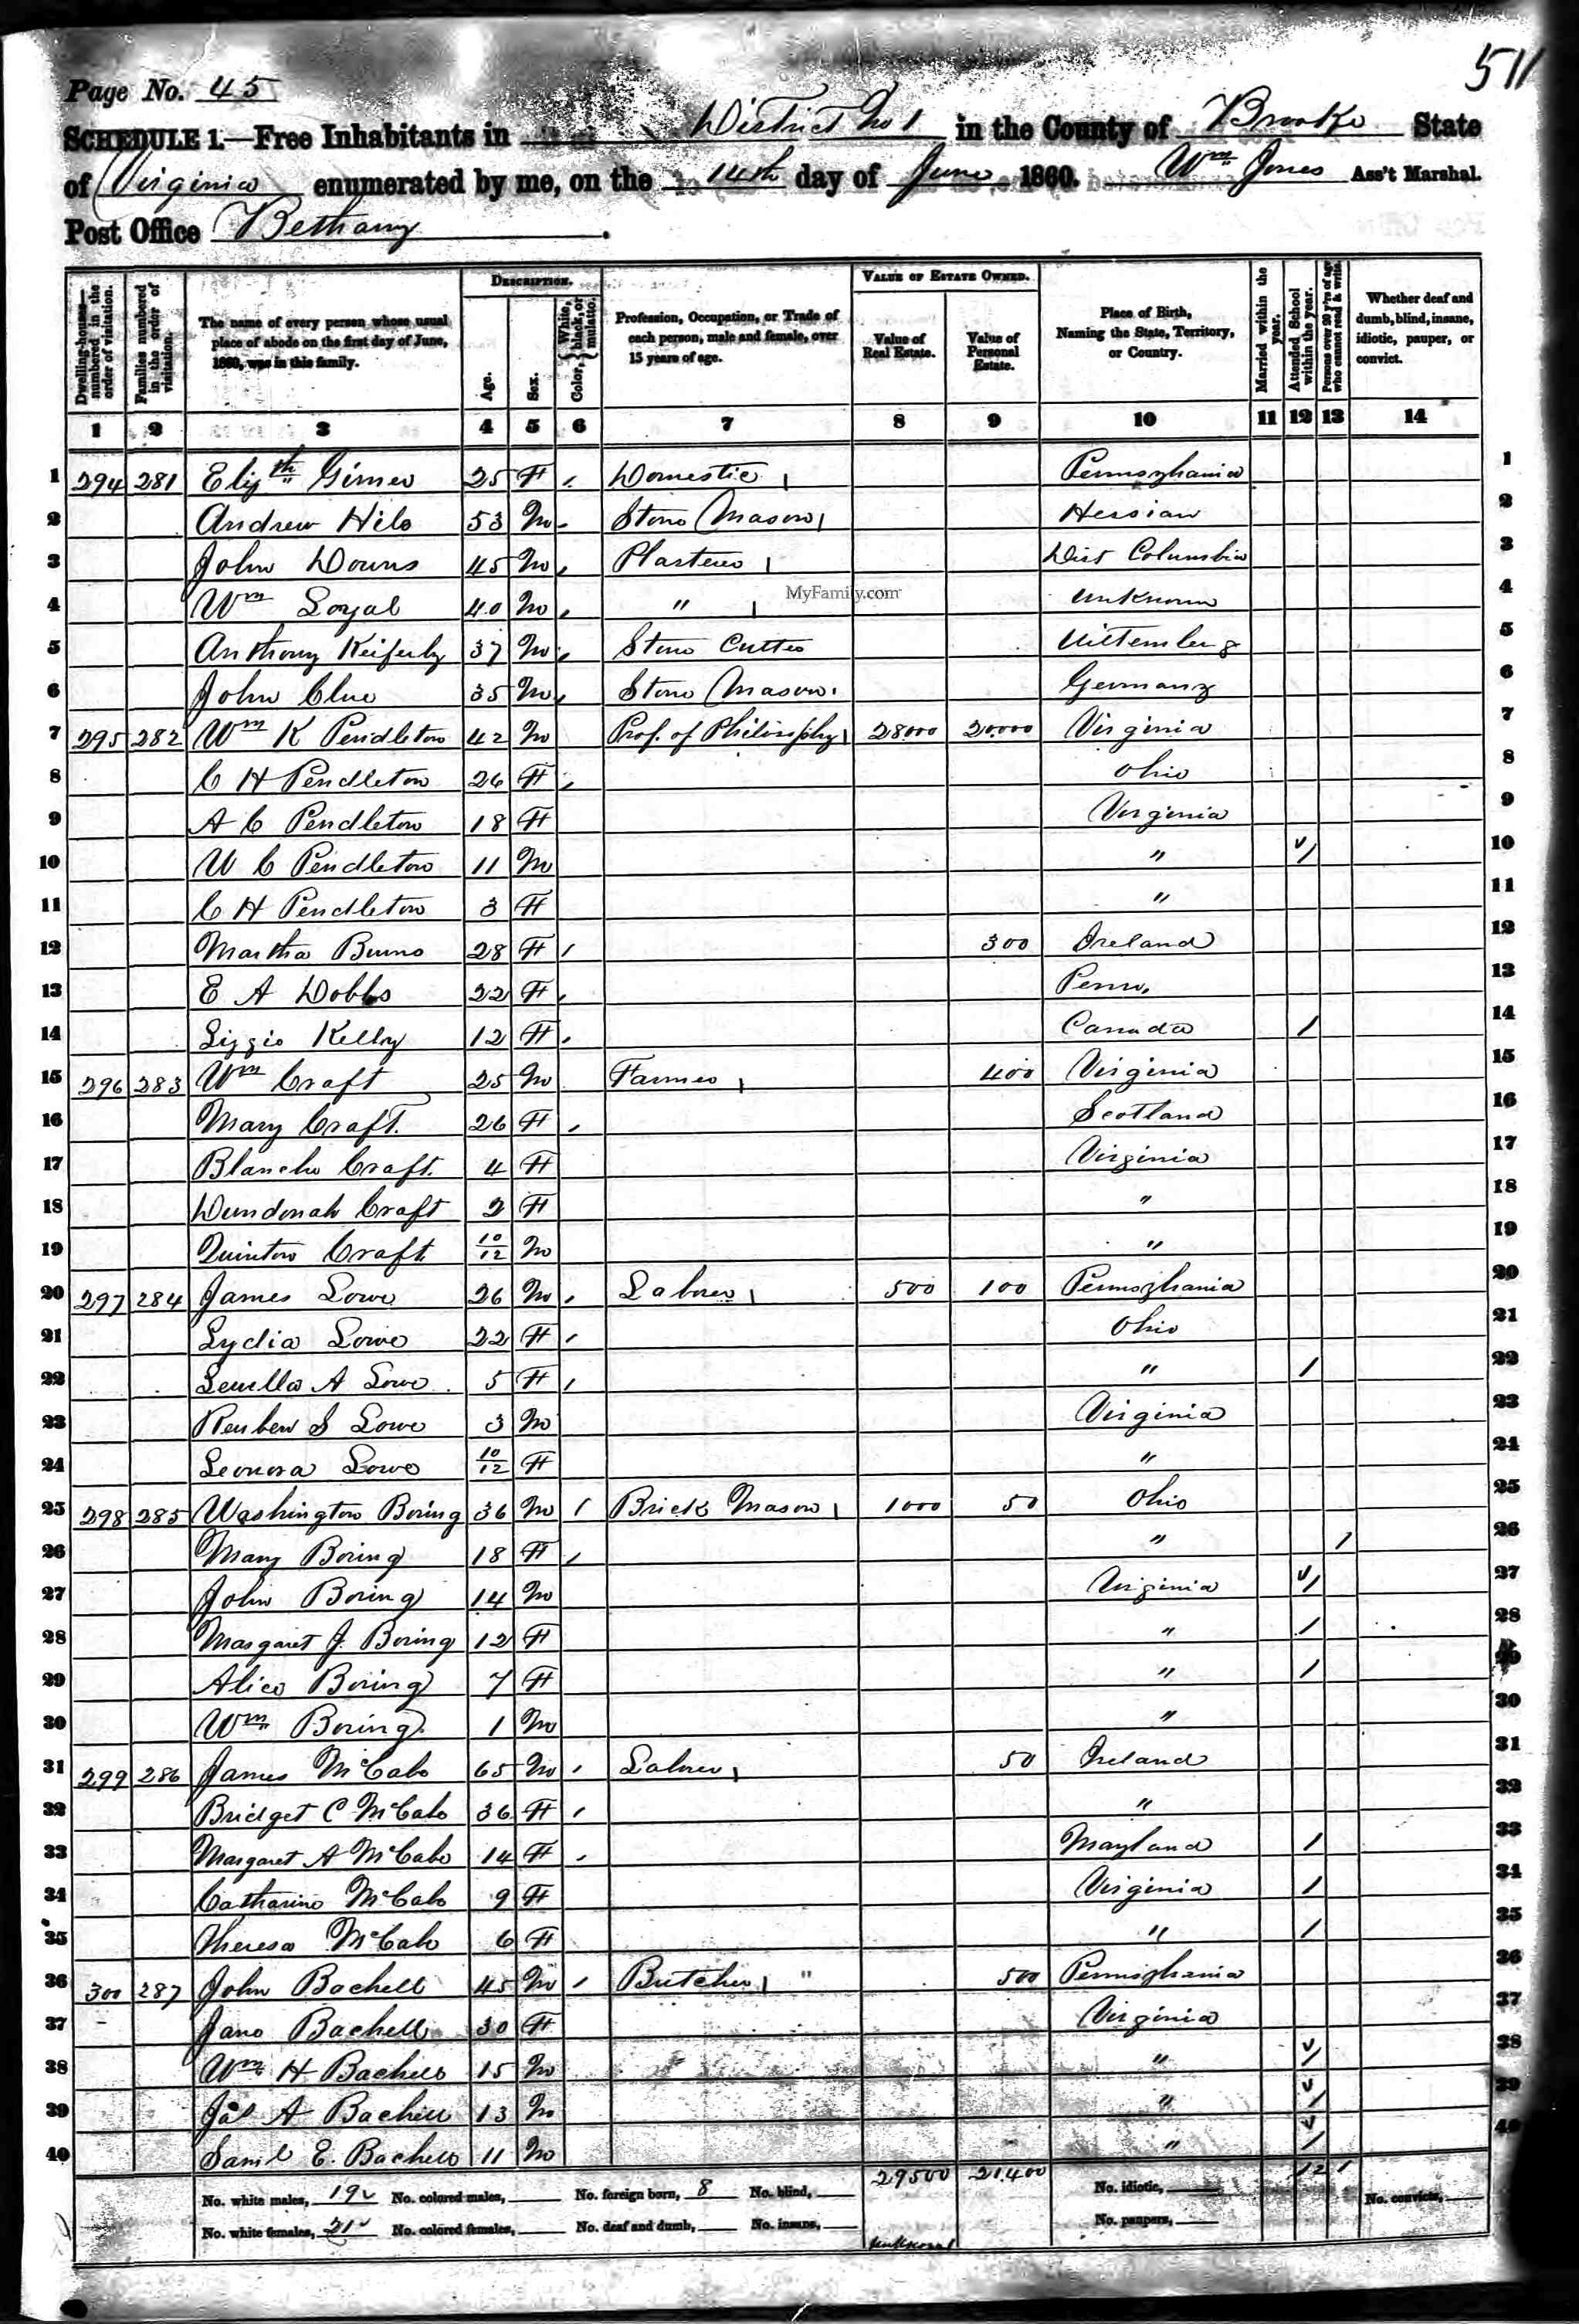 511
Page No. 45
SCHEDULE 1.—Free Inhabitants in District No 1 in the County of Brooke State
of Virginia enumerated by me, on the 14th day of June 1860. Wm Jones Ass't Marshal.
Post Office Bethany.
Dwelling-houses—numbered in the order of visitation. Families numbered in the order of visitation. The name of every person whose usual place of abode on the first day of June, 1860, was in this family. DESCRIPTION. Age. Sex. Color, { White, black, or mulatto. Profession, Occupation, or Trade of each person, male and female, over 15 years of age. VALUE OF ESTATE OWNED. Value of Real Estate. Value of Personal Estate. Place of Birth, Naming the State, Territory, or Country. Married within the year. Attended School within the year. Persons over 20 y'rs of age who cannot read & write. Whether deaf and dumb, blind, insane, idiotic, pauper, or convict.
1 2 3 4 5 6 7 8 9 10 11 12 13 14
1 294 281 Elizth 25 F Domestic Pennsylvania 1
2 Andrew Hile 53 M Stone Mason Hessian 2
3 John Downs 45 M Plasterer Dist Columbia 3
4 Wm Loyal 40 M " Unknown 4
MyFamily.com
5 Anthony 37 M Stone Cutter 5
6 John Clue 35 M Stone Mason Germany 6
7 295 282 Wm K Pendleton 42 M Prof. of Philosophy 28000 20000 Virginia 7
8 C H Pendleton 26 F Ohio 8
9 A C Pendleton 18 F Virginia 9
10 W C Pendleton 11 M " / 10
11 C H Pendleton 3 F " 11
12 Martha Burns 28 F 300 Ireland 12
13 E A Dobbs 22 F Penn. 13
14 Lizzie Kelly 12 F Canada / 14
15 296 283 Wm Craft 25 M Farmer 400 Virginia 15
16 Mary Craft 26 F Scotland 16
17 Blanche Craft 4 F Virginia 17
18 Craft 2 F " 18
19 Quinton Craft 10/12 M " 19
20 297 284 James Lowe 26 M Laborer 500 100 Pennsylvania 20
21 Lydia Lowe 22 F Ohio 21
22 Louella A Lowe 5 F " / 22
23 Reuben S Lowe 3 M Virginia 23
24 Leonora Lowe 10/12 F " 24
25 298 285 Washington Boring 36 M Brick Mason 1000 50 Ohio 25
26 Mary Boring 18 F " / 26
27 John Boring 14 M Virginia / 27
28 Margaret J. Boring 12 F " / 28
29 Alice Boring 7 F " / 29
30 Wm Boring 1 M " 30
31 299 286 James McCabe 65 M Laborer 50 Ireland 31
32 Bridget C McCabe 36 F " 32
33 Margaret A McCabe 14 F Mayland / 33
34 Catharine McCabe 9 F Virginia / 34
35 Theresa McCabe 6 F " / 35
36 300 287 John Bachell 45 M Butcher " 500 Pennsylvania 36
37 Jane Bachell 30 F Virginia 37
38 Wm H Bachell 15 M " / 38
39 Jas A Bachell 13 M " / 39
40 Saml E. Bachell 11 M " / 40
No. white males, 19 No. colored males, No. foreign born, 8 No. blind, 29500 21400 No. idiotic, 12 1 No. convicts,
No. white females, 21 No. colored females, No. deaf and dumb, No. insane, No. paupers,